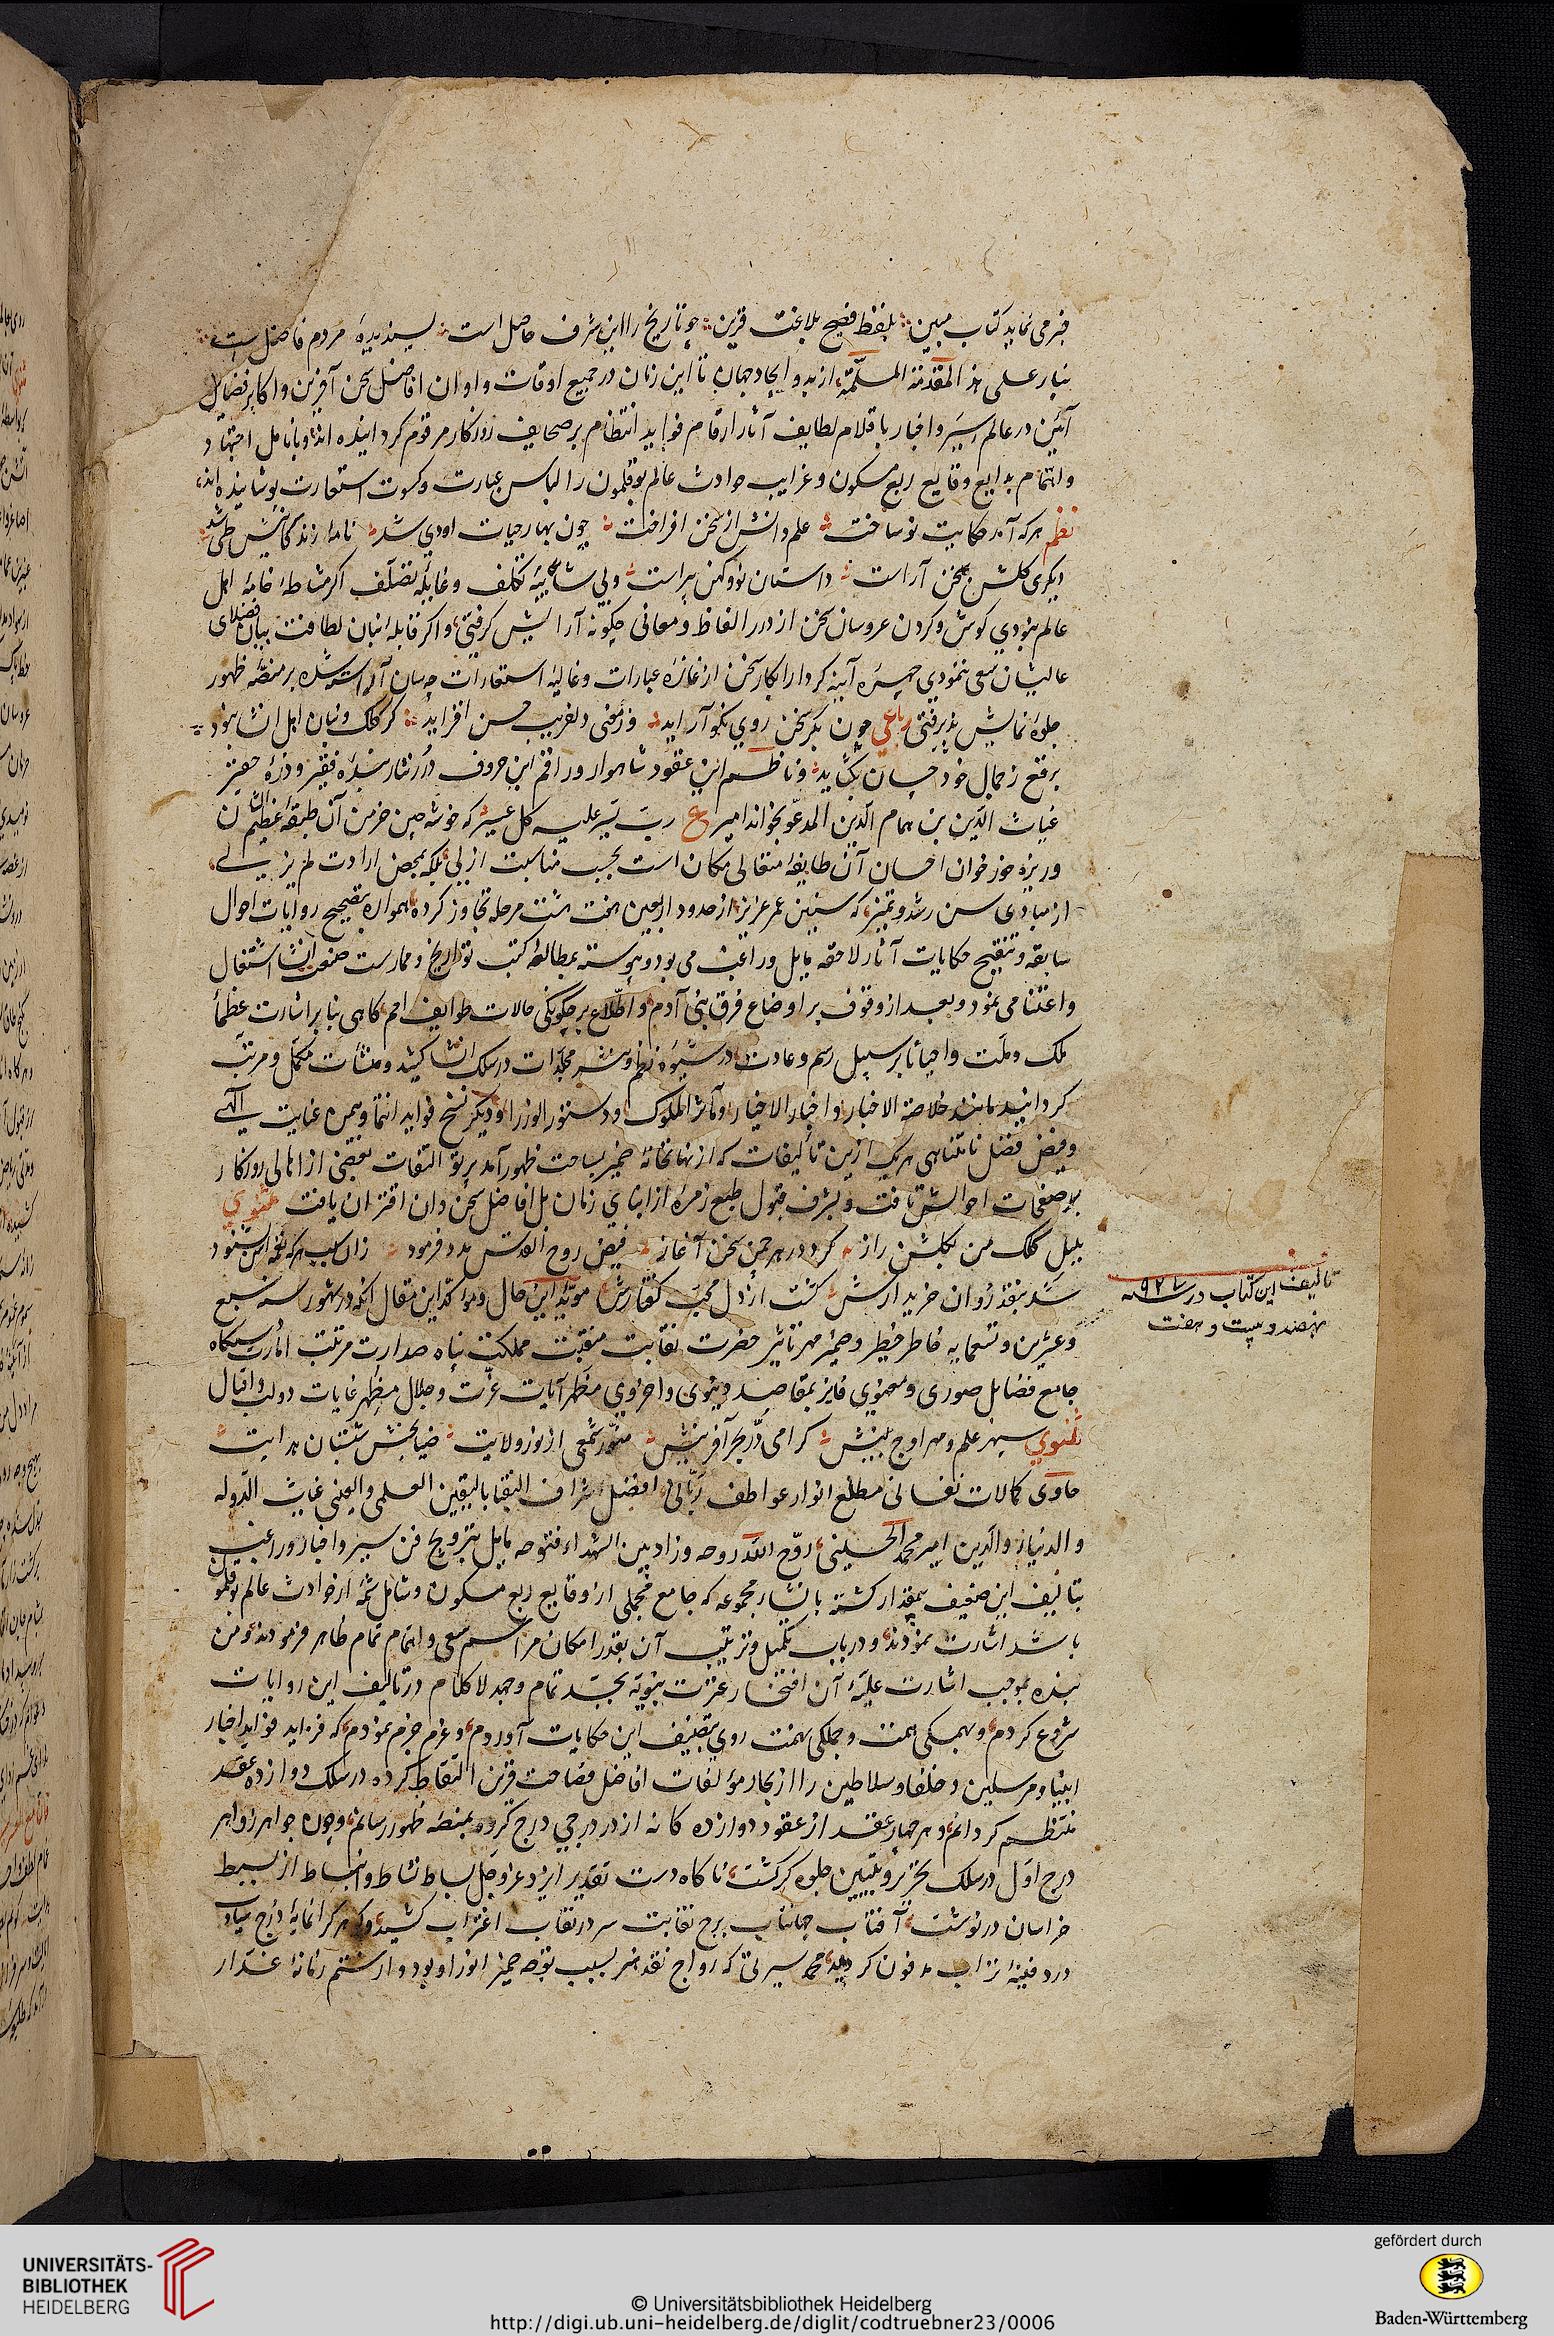 خبر می نماید کتاب مبین بلفظ فصیح بلاغت قرین چو تاریخ را این شرف حاصل است پسندیدهٔ مردم فاضل است
بنابر علی هذه المقدمة المسلّمة از بدو ایجاد جهان تا این زمان در جمیع اوقات و اوان افاضل سخن آفرین و اکابر فضایل
آئین در عالم سیر و اخبار باقلام لطایف آثار ارقام فواید انتظام بر صحایف روزکار مرقوم کردانیده اند و بانامل اجتهاد
و اهتمام بدایع وقایع ربع مسکون و غرایب حوادث عالم بوقلمون را لباس عبارت و کسوت استعارت پوشانیده اند
نظم هر که آمد حکایت نو ساخت علم دانش از سخن افراخت چون بهار حیات او دی شد نامهٔ زندکانیش طی شد
دیکری کلشن سخن آراست داستان نو و کهن پیراست و بی شائبهٔ تکلف و غایلهٔ تصلّف اکر مشاطهٔ خامهٔ اهل
عالم نبودی کوش و کردن عروسان سخن از درر الفاظ و معانی چکونه آرایش کرفتی و اکر قابلهٔ بنان لطافت بیان فضلای
عالیشان سعی ننمودی چهرهٔ آینه کردار ابکار سخن از غازهٔ عبارات و غالیهٔ استعارات چه سان آراسته شده بر منصّهٔ ظهور
جلوهٔ نمایش پذیرفتی رباعی چون بکر سخن روی نکو آراید وز معنی دلفریب حسن افزاید کر کلک و بنان اهل انشا نبود
برقع ز جمال خود چسان بکشاید و ناظم این عقود شاهوار و راقم این حروف درر نثار بندهٔ فقیر و ذرهٔ حقیر
غیاث الدین بن همام الدین المدعو بخواند امیر ع ربّ یسّر علیه کل عسیر که خوشه چین خرمن آن طبقهٔ عظیم الشان
و ریزه خور خوان احسان آن طایفهٔ متعالی مکان است بحسب مناسبت ازلی بلکه بمحض ارادت لم یزلی
از مبادی سن رشد و تمییز که سنین عمر عزیز از حدود اربعین هفت هشت مرحله تجاوز کرده همواره بتصحیح روایات احوال
سابقه و تنقیح حکایات آثار لاحقه مایل و راغب می بود و پیوسته بمطالعهٔ کتب تواریخ و ممارست صنعت انشا اشتغال
و اعتنا می نمود و بعد از وقوف بر اوضاع فرق بنی آدم و اطّلاع بر چکونکی حالات طوایف امم کاهی بنابر اشارت عظمأ
ملک و ملّت و احیانا بر سبیل رسم و عادت در شیوهٔ نظم و نثر مجلّدات در سلک انشا کشید و منشآت مکمّل و مرتّب
کردانید مانند خلاصة الاخبار و اخبار الاخیار و مآثر الملوک و دستور الوزرا و دیکر نسخ فواید انتما و بیمن عنایت الهی
و فیض فضل نامتناهی هر یک ازین تألیفات که از نهانخانهٔ ضمیر بساحت ظهور آمد پرتو التفات بعضی از اهالی روزکار
بر صفحات احوالش تافت و بشرف قبول طبع زمرهٔ از ابنای زمان بل افاضل سخن دان اقتران یافت مثنوی
بلبل کلک من بکلشن راز کرد در هر چمن سخن آغاز فیض روح القدس مدد فرمود زان سبب هر که نغمه اش بشنود
شد بنقد روان خریدارش کشت از دل محبّ کفتارش مؤیّد این حال و مؤکّد این مقال آنکه در شهور سنهٔ سبع
و عشرین و تسعمایه خاطر خطیر و ضمیر مهر تاثیر حضرت نقابت منقبت مملکت پناه صدارت مرتبت امارت دستکاه
جامع فضایل صوری و معنوی فایز بمقاصد دنیوی و اخروی مظهر آیات عزّت و جلال مظهر غایات دولت و اقبال
مثنوی سپهر علم و مهر اوج بینش کرامی درّ بحر آفرینش منوّر شمعی از نور ولایت ضیا بخش شبستان هدایت
حاوی کمالات نفسانی مطلع انوار عواطف ربّانی افضل اشراف النقبا بالیقین العلمی و العینی غیاث الدوله
و الدنیا و الدین امیر محمد الحسینی روّح الله روحه و زاد بین الشهداء فتوحه مایل بترویج فن سیر و اخبار و راغب
بتالیف این ضعیف بیمقدار کشته بانشاء مجموعه که جامع مجملی از وقایع ربع مسکون و شامل شمهٔ از حوادث عالم بوقلمون
باشد اشارت نمودند و در باب تکمیل و ترتیب آن بقدر امکان مراسم سعی و اهتمام تمام ظاهر فرمودند و من
بنده بموجب اشارت علیّهٔ آن افتخار عترت نبویّه بجدّ تمام و جهد لا کلام در تالیف این روایات
شروع کردم و بهمکی همت و جملکی نهمت روی بتصنیف این حکایات آوردم و عزم جزم نمودم که فراید فواید اخبار
انبیا و مرسلین و خلفا و سلاطین را از بحار مؤلفات افاضل فصاحت قرین التقاط کرده در سلک دوازده عقد
منتظم کردانم و هر چهار عقد از عقود دوازده کانه از در درجی درج کرده بمنصّه ظهور رسانم و چون جواهر زواهر
درج اوّل در سلک تحریر و تبیین جلوه کر کشت ناکاه دست تقدیر ایزد عزّ و جلّ بساط نشاط و انبساط از بسیط
خراسان درنوشت آفتاب جهانتاب برج نقابت سر در نقاب اغتراب کشید و کوهر کرانمایهٔ درج سیادت
در دفینهٔ تراب مدفون کردید محمد سیرتی که رواج نقد هنر بسبب توجه ضمیر انور او بود و از ستم زمانهٔ غدّار
تالیف این کتاب در سنه ۹۲۷
نهصد و بیست و هفت
UNIVERSITÄTS-
BIBLIOTHEK
HEIDELBERG
© Universitätsbibliothek Heidelberg
http://digi.ub.uni-heidelberg.de/diglit/codtruebner23/0006
gefördert durch
Baden-Württemberg